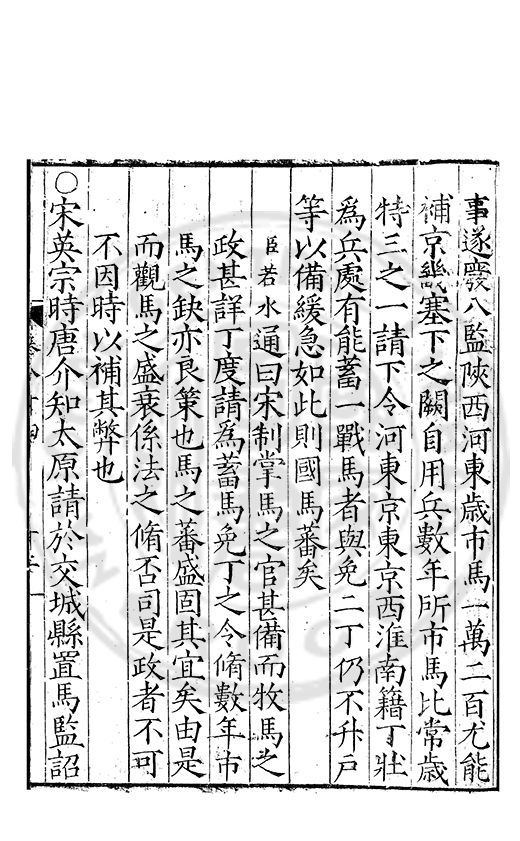 事遂廢八監陝西河東歲市馬一萬二百尤能
補京畿塞下之闕自用兵數年所市馬比常歲
特三之一請下令河東京東京西淮南籍丁壯
爲兵處有能蓄一戰馬者與免二丁仍不升戶
等以備緩急如此則國馬蕃矣
臣若水通曰宋制掌馬之官甚備而牧馬之
政甚詳丁度請爲蓄馬免丁之令脩數年市
馬之缺亦良策也馬之蕃盛固其宜矣由是
而觀馬之盛衰係法之脩否司是政者不可
不因時以補其弊也
○宋英宗時唐介知太原請於交城縣置馬監詔